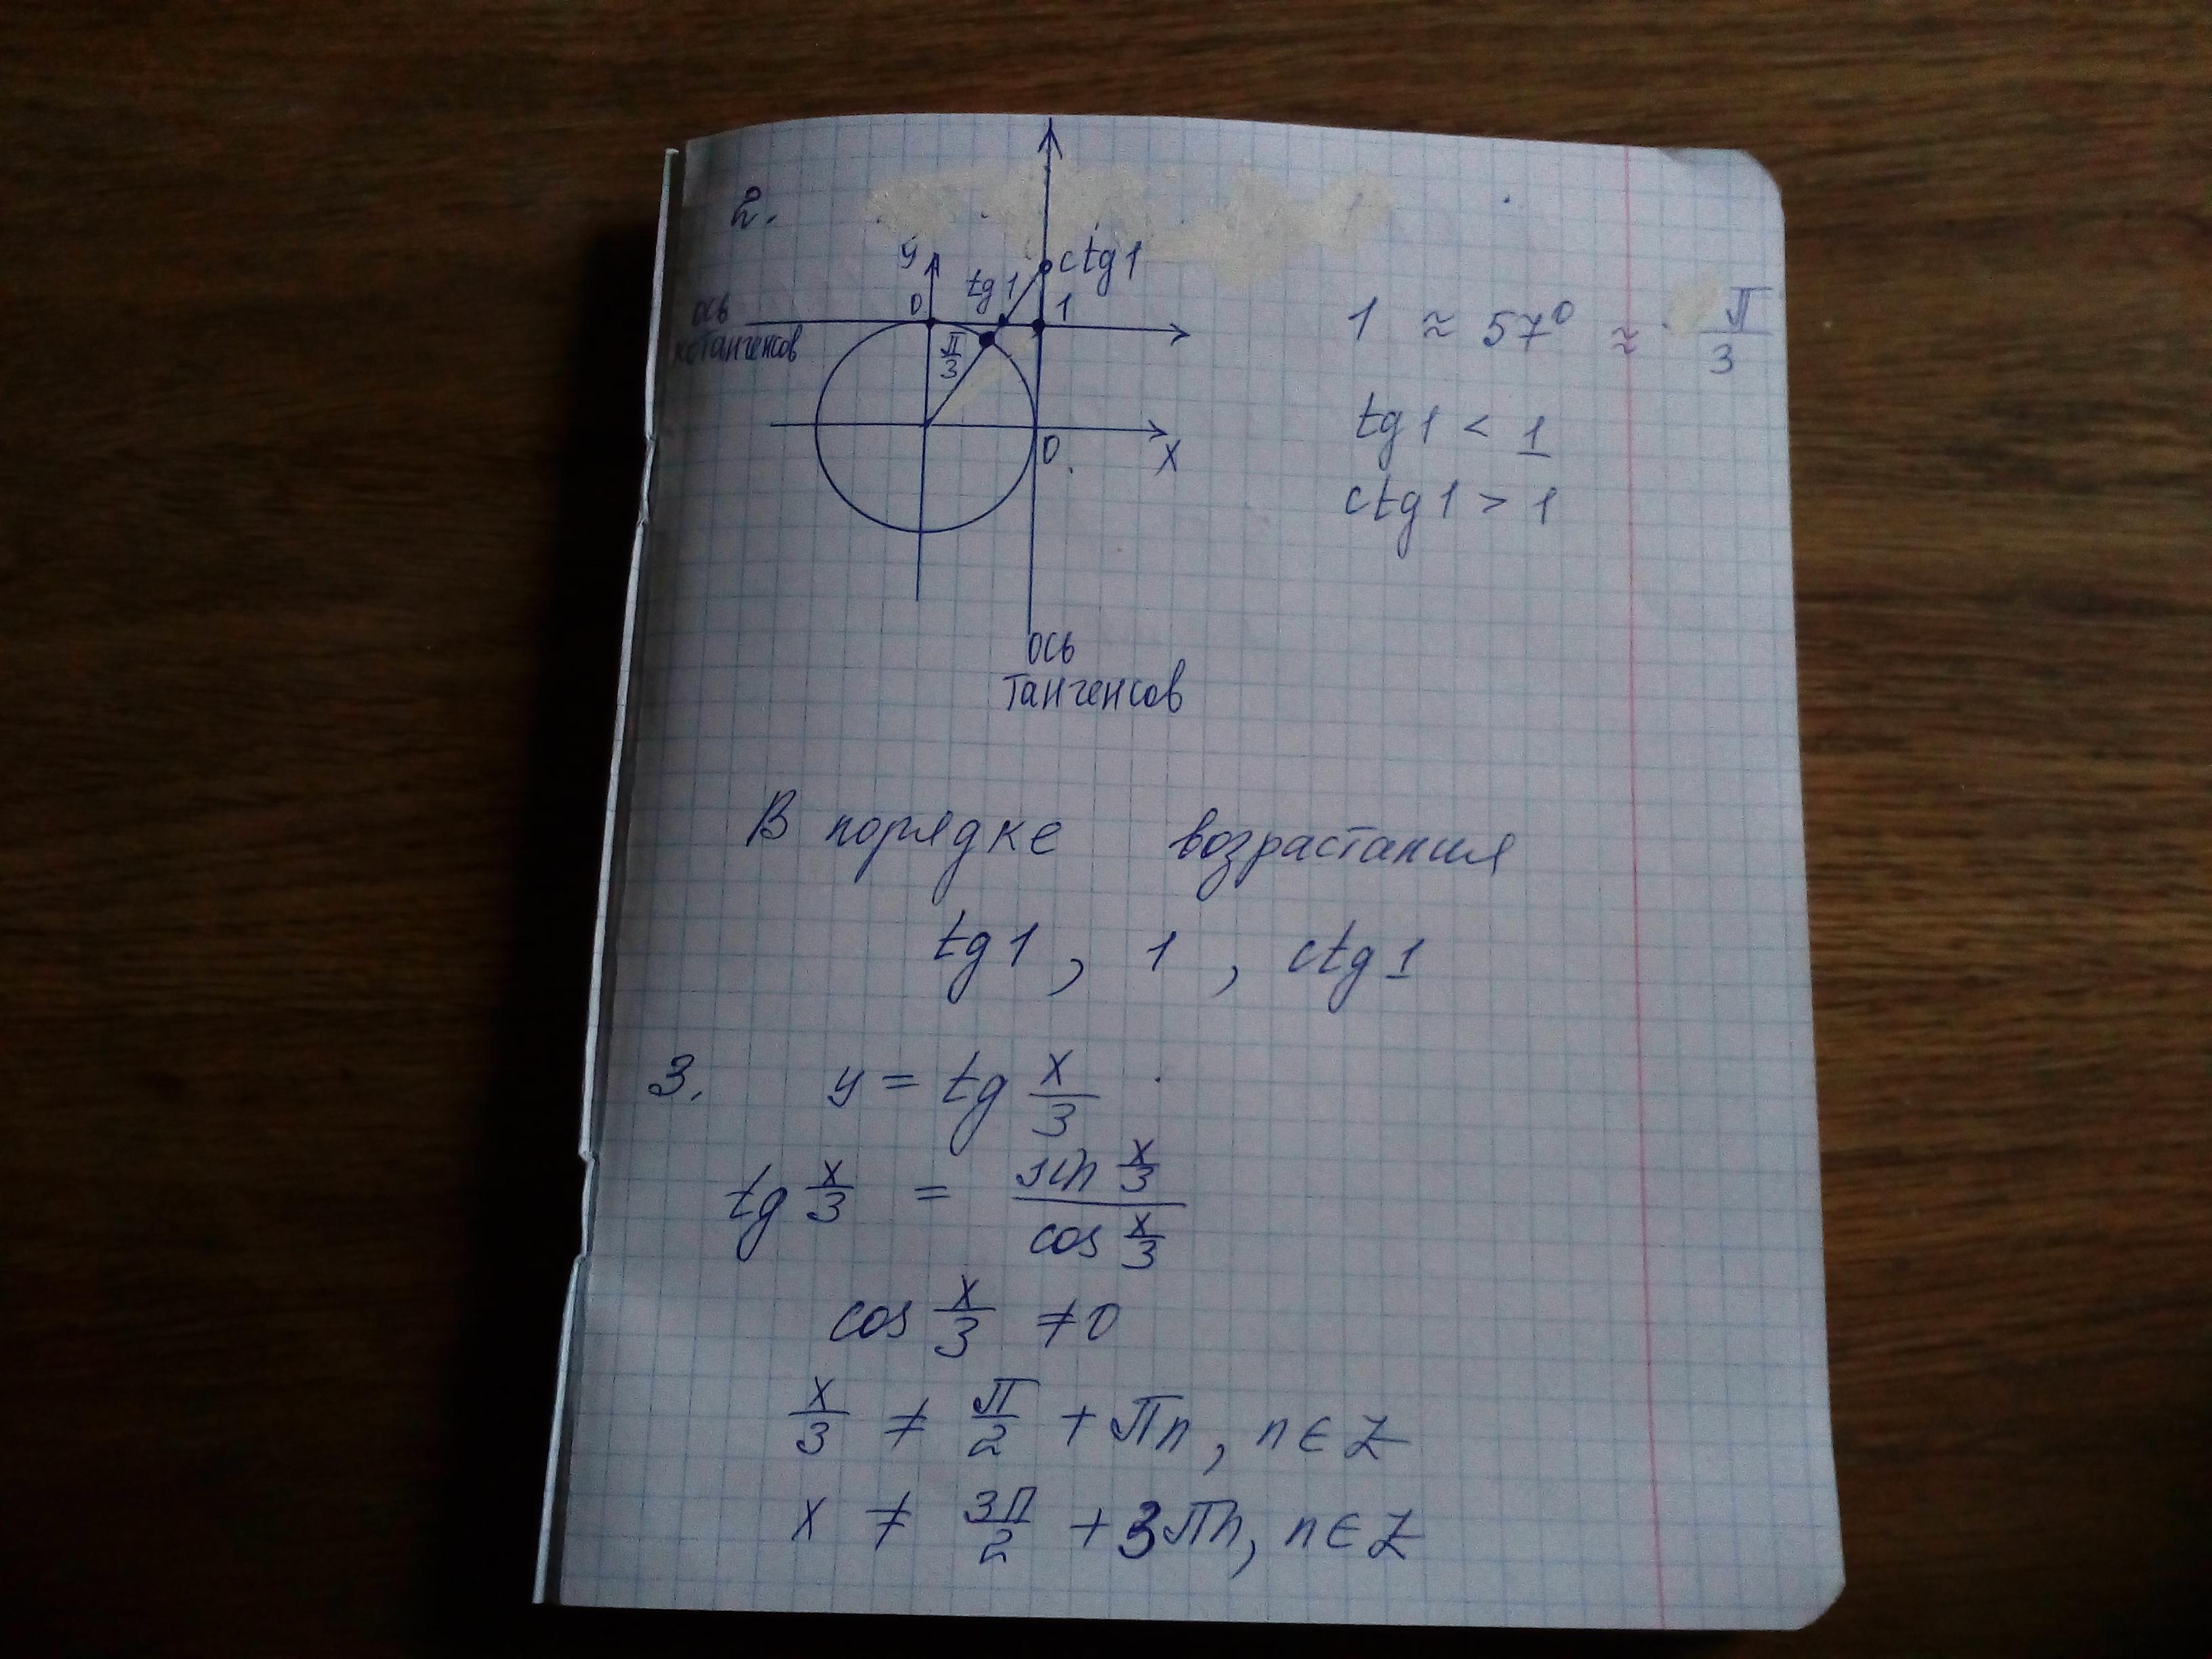 2.
y
ctg 1
tg 1
0
1
ось
котангенсов
π/3
0
x
ось
тангенсов
1 ≈ 57° ≈ π/3
tg 1 < 1
ctg 1 > 1
В порядке возрастания
tg 1 , 1 , ctg 1
3. y = tg x/3
tg x/3 = sin x/3 / cos x/3
cos x/3 ≠ 0
x/3 ≠ π/2 + πn, n ∈ Z
x ≠ 3π/2 + 3πn, n ∈ Z